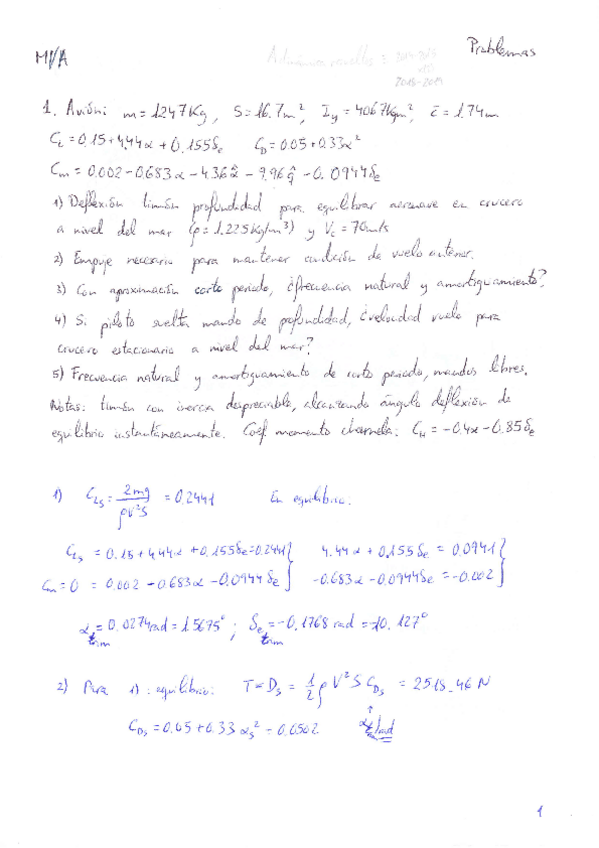 MVA
Problemas
2015-2019
1. Avión: m = 1247 Kg, S = 16.7 m², Iy = 4067 Kgm², c̄ = 1.74 m
C_L = 0.15 + 4.44α + 0.155δe   C_D = 0.05 + 0.33α²
C_m = 0.002 - 0.683α - 4.36α̂ - 9.96q̂ - 0.0944δe
1) Deflexión timón profundidad para equilibrar aeronave en crucero
a nivel del mar (ρ = 1.225 Kg/m³) y V = 70 m/s
2) Empuje necesario para mantener condición de vuelo anterior.
3) Con aproximación corto periodo, ¿frecuencia natural y amortiguamiento?
4) Si piloto suelta mando de profundidad, ¿velocidad vuelo para
crucero estacionario a nivel del mar?
5) Frecuencia natural y amortiguamiento de corto periodo, mandos libres.
Notas: timón con inercia despreciable, alcanzando ángulo deflexión de
equilibrio instantáneamente. Coef momento charnela: C_H = -0.4α - 0.85δe
1) C_Ls = 2mg / ρV²S = 0.2441   En equilibrio:
C_Ls = 0.15 + 4.44α + 0.155δe = 0.2441 }   4.44α + 0.155δe = 0.0941 }
C_m = 0 = 0.002 - 0.683α - 0.0944δe }   -0.683α - 0.0944δe = -0.002 }
α trim = 0.0274 rad = 1.5675° ; δe trim = -0.1768 rad = -10.127°
2) Para 1): equilibrio: T = Ds = 1/2 ρ V² S C_Ds = 2518.46 N
C_Ds = 0.05 + 0.33 αs² = 0.0502   ↑ rad
1